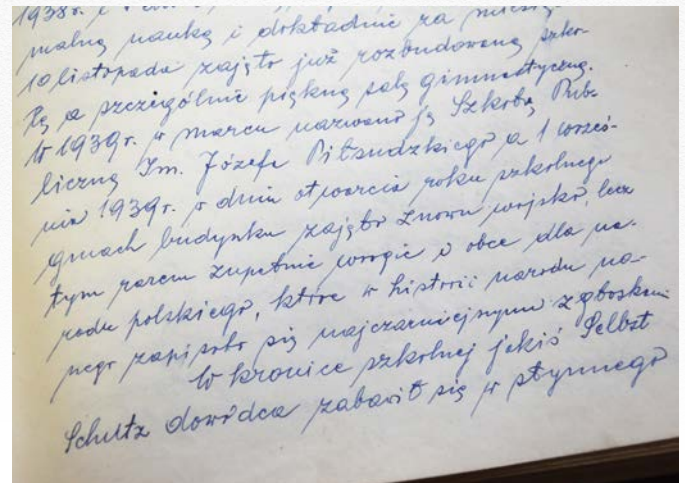 1938r. i
malną nauką i dokładnie za miesią-
10 listopada zajęto już rozbudowaną szko-
łę a szczególnie piękną salę gimnastyczną.
W 1939r. w marcu nazwano ją Szkołą Pub-
liczną Im. Józefa Piłsudzkiego a 1 wrześ-
nia 1939r. w dniu otwarcia roku szkolnego
gmach budynku zajęto znowu wojsko, lecz
tym razem zupełnie wrogie i obce dla na-
rodu polskiego, które w historii narodu na-
szego zapisało się najczarniejszymi zgłoskami
W kronice szkolnej jakiś Selbst
Schultz dowódca zabawił się w słynnego